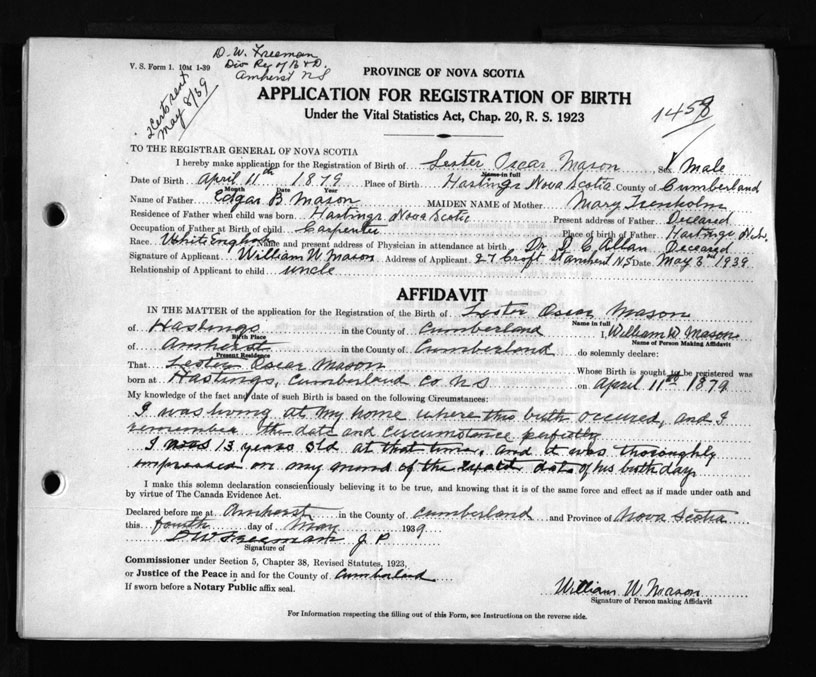 V. S. Form 1. 10M 1-39
D. W. Freeman
Div Reg of B & D.
Amherst NS
2 Certs sent
May 8/39
PROVINCE OF NOVA SCOTIA
APPLICATION FOR REGISTRATION OF BIRTH
Under the Vital Statistics Act, Chap. 20, R. S. 1923
1458
TO THE REGISTRAR GENERAL OF NOVA SCOTIA
I hereby make application for the Registration of Birth of Lester Oscar Mason Sex Male
Name in full
Date of Birth April 11th 1879 Place of Birth Hastings Nova Scotia County of Cumberland
Month Date Year
Name of Father Edgar B. Mason MAIDEN NAME of Mother Mary Trenholm
Residence of Father when child was born. Hastings Nova Scotia Present address of Father Deceased
Occupation of Father at Birth of Child Carpenter Place of Birth of Father Hastings N.S.
Race. White English Name and present address of Physician in attendance at birth Dr. D. C. Allan Deceased
Signature of Applicant William W Mason Address of Applicant 27 Croft St Amherst NS Date May 3rd 1939
Relationship of Applicant to child uncle
AFFIDAVIT
IN THE MATTER of the application for Registration of the Birth of Lester Oscar Mason
Name in full
of Hastings in the County of Cumberland I, William W. Mason
Birth Place Name of Person Making Affidavit
of Amherst in the County of Cumberland do solemnly declare:
Present Residence
That Lester Oscar Mason Whose Birth is sought to be registered was
born at Hastings, Cumberland Co NS on April 11th 1879
My knowledge of the fact and date of such Birth is based on the following Circumstances:
I was living at my home where this birth occured, and I
remember the date and circumstance perfectly
I was 13 years old at that time, and it was thoroughly
impressed on my mind of the exact date of his birthday.
I make this solemn declaration conscientiously believing it to be true, and knowing that it is of the same force and effect as if made under oath and
by virtue of The Canada Evidence Act.
Declared before me at Amherst in the County of Cumberland and Province of Nova Scotia
this fourth day of May 1939
D W Freeman J. P.
Signature of
Commissioner under Section 5, Chapter 38, Revised Statutes, 1923.
or Justice of the Peace in and for the County of Cumberland
If sworn before a Notary Public affix seal.
William W. Mason
Signature of Person making Affidavit
For Information respecting the filling out of this Form, see Instructions on the reverse side.